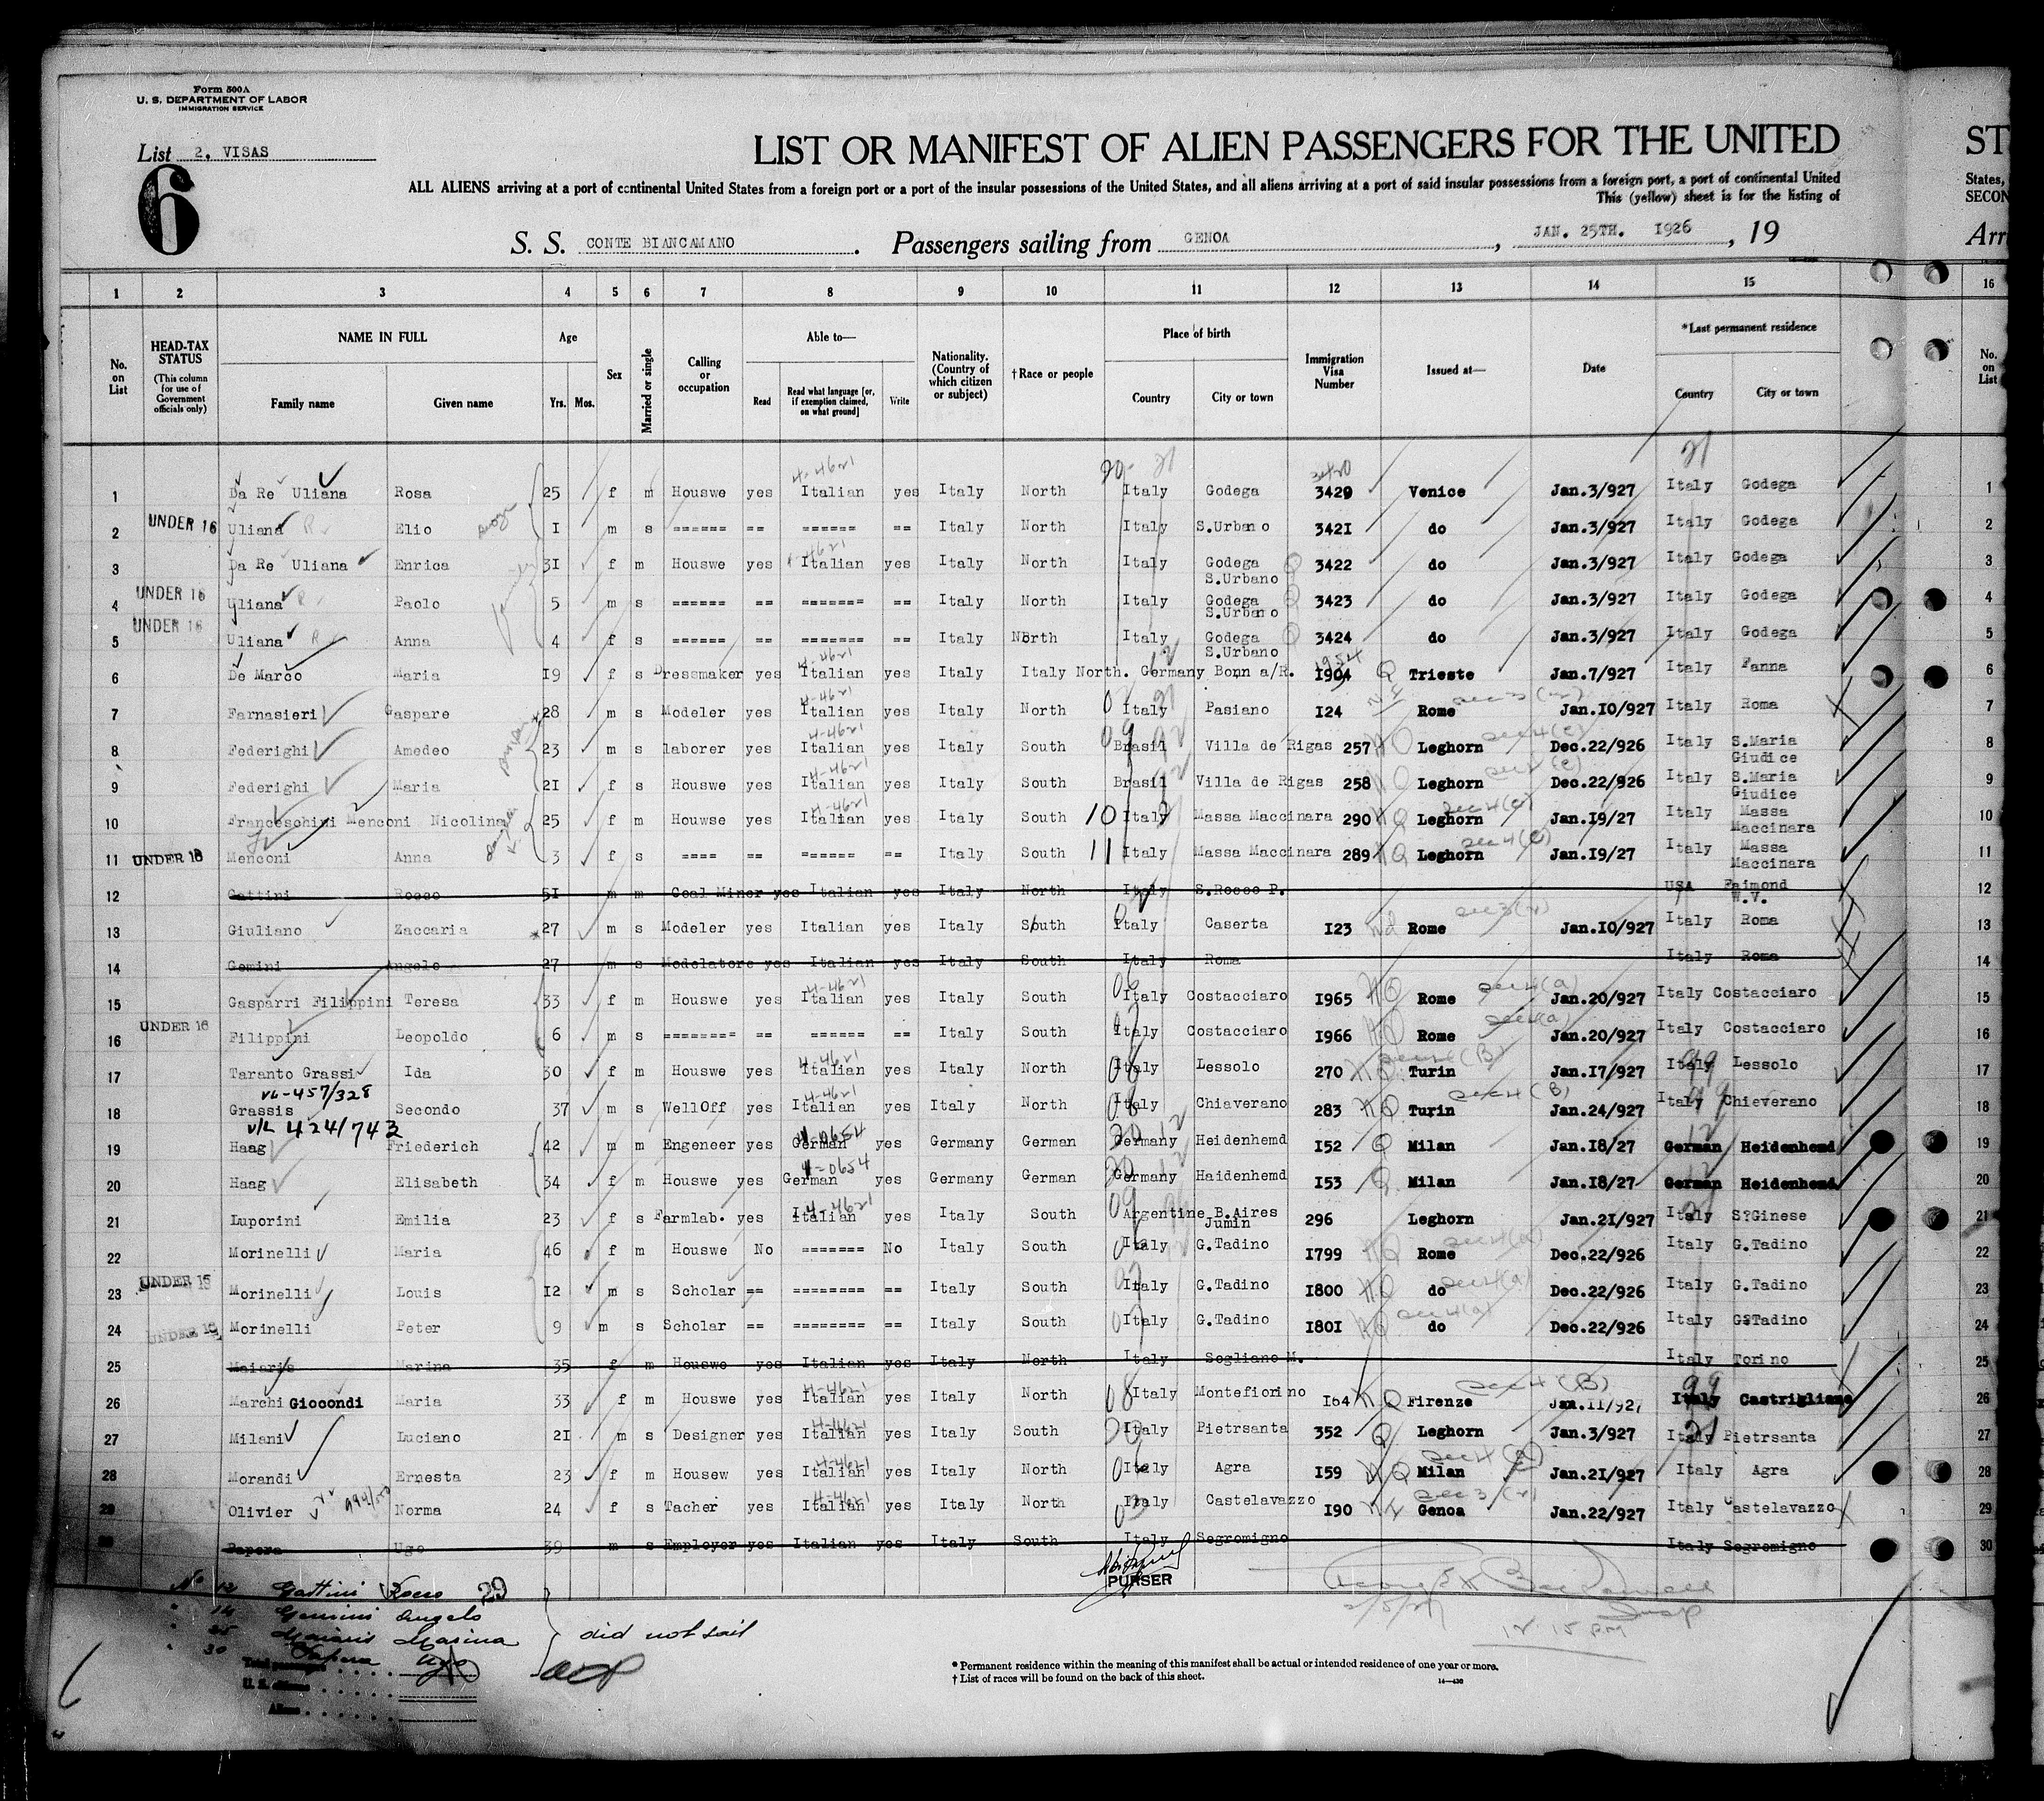 Form 500A
U. S. DEPARTMENT OF LABOR
IMMIGRATION SERVICE
List 2. VISAS
6
LIST OR MANIFEST OF ALIEN PASSENGERS FOR THE UNITED
ST
ALL ALIENS arriving at a port of continental United States from a foreign port or a port of the insular possessions of the United States, and all aliens arriving at a port of said insular possessions from a foreign port, a port of continental United
States,
This (yellow) sheet is for the listing of
SECON
S. S. CONTE BIANCAMANO. Passengers sailing from GENOA, JAN. 25TH. 1926, 19
Arri
1 2 3 4 5 6 7 8 9 10 11 12 13 14 15 16
No. on List
HEAD-TAX STATUS (This column for use of Government officials only)
NAME IN FULL Family name Given name
Age Yrs. Mos.
Sex
Married or single
Calling or occupation
Able to— Read Read what language [or, if exemption claimed, on what ground] Write
Nationality. (Country of which citizen or subject)
†Race or people
Place of birth Country City or town
Immigration Visa Number
Issued at—
Date
*Last permanent residence Country City or town
No. on List
1 Da Re Uliana Rosa 25 f m Houswe yes Italian yes Italy North Italy Godega 3420 Venice Jan.3/927 Italy Godega 1
2 UNDER 16 Uliana Elio I m s ====== == ====== == Italy North Italy S.Urbano 3421 do Jan.3/927 Italy Godega 2
3 Da Re Uliana Enrica 3I f m Houswe yes Italian yes Italy North Italy Godega S.Urbano 3422 do Jan.3/927 Italy Godega 3
4 UNDER 16 Uliana Paolo 5 m s ====== == ======= == Italy North Italy Godega S.Urbano 3423 do Jan.3/927 Italy Godega 4
5 UNDER 16 Uliana Anna 4 f s ====== == ======= == Italy North Italy Godega S.Urbano 3424 do Jan.3/927 Italy Godega 5
6 De Marco Maria I9 f s Dressmaker yes Italian yes Italy Italy North. Germany Bonn a/R. I904 1954 Trieste Jan.7/927 Italy Fanna 6
7 Farnasieri Gaspare 28 m s Modeler yes Italian yes Italy North Italy Pasiano I24 Rome Jan.I0/927 Italy Roma 7
8 Federighi Amedeo 23 m s laborer yes Italian yes Italy South Brasil Villa de Rigas 257 Leghorn Dec.22/926 Italy S.Maria Giudice 8
9 Federighi Maria 2I f s Houswe yes Italian yes Italy South Brasil Villa de Rigas 258 Leghorn Dec.22/926 Italy S.Maria Giudice 9
10 Franceschini Menconi Nicolina 25 f m Houwse yes Italian yes Italy South 10 Italy Massa Maccinara 290 Leghorn Jan.I9/27 Italy Massa Maccinara 10
11 UNDER 16 Menconi Anna 3 f s ==== == ====== == Italy South 11 Italy Massa Maccinara 289 Leghorn Jan.I9/27 Italy Massa Maccinara 11
12 Gattini Rocco 5I m m Coal Minor yes Italian yes Italy North Italy S.Rocco P. USA Faimond W.V. 12
13 Giuliano Zaccaria 27 m s Modeler yes Italian yes Italy South Italy Caserta I23 Rome Jan.I0/927 Italy Roma 13
14 Gemini Angelo 27 m s Modelatore yes Italian yes Italy South Italy Roma Italy Roma 14
15 Gasparri Filippini Teresa 33 f m Houswe yes Italian yes Italy South Italy Costacciaro I965 Rome Jan.20/927 Italy Costacciaro 15
16 UNDER 16 Filippini Leopoldo 6 m s ======== == ====== == Italy South Italy Costacciaro I966 Rome Jan.20/927 Italy Costacciaro 16
17 Taranto Grassi Ida 30 f m Houswe yes Italian yes Italy North Italy Lessolo 270 Turin Jan.I7/927 Italy Lessolo 17
VL-457/328
18 Grassis Secondo 37 m s WellOff yes Italian yes Italy North Italy Chiaverano 283 Turin Jan.24/927 Italy Chieverano 18
V/L 424/743
19 Haag Friederich 42 m m Engeneer yes German yes Germany German Germany Heidenhemd I52 Milan Jan.I8/27 German Heidenhemd 19
20 Haag Elisabeth 34 f m Houswe yes German yes Germany German Germany Haidenhemd I53 Milan Jan.I8/27 German Heidenhemd 20
21 Luporini Emilia 23 f s Farmlab. yes Italian yes Italy South Argentine B.Aires Jumin 296 Leghorn Jan.2I/927 Italy S?Ginese 21
22 Morinelli Maria 46 f m Houswe No ======= No Italy South Italy G.Tadino I799 Rome Dec.22/926 Italy G.Tadino 22
23 UNDER 16 Morinelli Louis I2 m s Scholar == ======== == Italy South Italy G.Tadino I800 do Dec.22/926 Italy G.Tadino 23
24 UNDER 16 Morinelli Peter 9 m s Scholar == ======== == Italy South Italy G.Tadino I80I do Dec.22/926 Italy G?Tadino 24
25 Maiaris Marina 35 f m Houswe yes Italian yes Italy North Italy Sogliano M. Italy Torino 25
26 Marchi Giocondi Maria 33 f m Houswe yes Italian yes Italy North Italy Montefiorino I64 Firenze Jan.II/927 Italy Castrigliano 26
27 Milani Luciano 2I m s Designer yes Italian yes Italy South Italy Pietrsanta 352 Leghorn Jan.3/927 Italy Pietrsanta 27
28 Morandi Ernesta 23 f m Housew yes Italian yes Italy North Italy Agra I59 Milan Jan.2I/927 Italy Agra 28
29 Olivier Norma 24 f s Tacher yes Italian yes Italy North Italy Castelavazzo I90 Genoa Jan.22/927 Italy Castelavazzo 29
30 Papera Ugo 39 m s Employer yes Italian yes Italy South Italy Segromigno Italy Segromigno 30
PURSER
No 12 Gattini Rocco 29
" 14 Gemini Angelo
" 25 Maiaris Marina
" 30 Papera Ugo
did not sail
Total passengers
U. S. citizens
Aliens
2/5/27
Insp
12 15 PM
* Permanent residence within the meaning of this manifest shall be actual or intended residence of one year or more.
† List of races will be found on the back of this sheet.
14—430